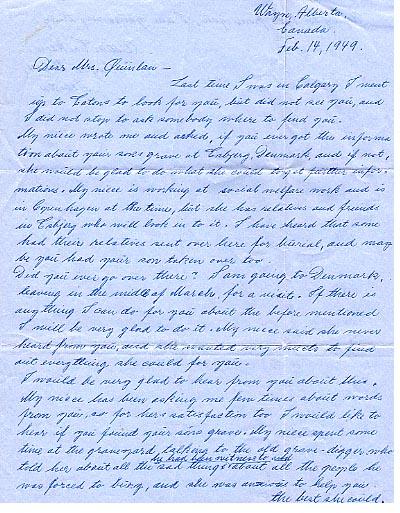 Wayne, Alberta.
Canada.
Feb. 14, 1949.
Dear Mrs. Quinlan –
Last time I was in Calgary I went
up to Eatons to look for you, but did not see you, and
I did not stop to ask somebody where to find you.
My niece wrote me and asked, if you ever got the informa
tion about your sons grave at Esbjerg, Denmark, and if not,
she would be glad to do what she could to get further infor-
mations. My niece is working at social welfare work and is
in Copenhagen at the time, but she has relatives and friends
in Esbjerg who will look in to it. I have heard that some
had theirs relatives sent over here for burial, and may
be you had your son taken over too.
Did you ever go over there? I am going to Denmark,
leaving in the middle of March, for a visit. If there is
anything I can do for you about the before mentioned
I will be very glad to do it. My niece said she never
heard from you, and she wanted very much to find
out everything she could for you.
I would be very glad to hear from you about this.
My niece has been asking me few times about words
from you, so for her satisfaction too I would like to
hear if you found your sons grave. My niece spent some
time at the graveyard, talking to the old grave-digger, who
told her about all the sad things he had been witness to about all the people he
was forced to bury, and she was anxious to help you
the best she could.